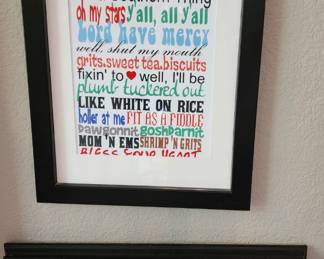 oh my stars y'all, all y'all
Lord have mercy
well, shut my mouth
grits.sweet tea.biscuits
fixin' to well, I'll be
plumb tuckered out
LIKE WHITE ON RICE
holler at me FIT AS A FIDDLE
dawgonnit goshdarnit
MOM 'N EMS SHRIMP 'N GRITS
BLESS YOUR HEART